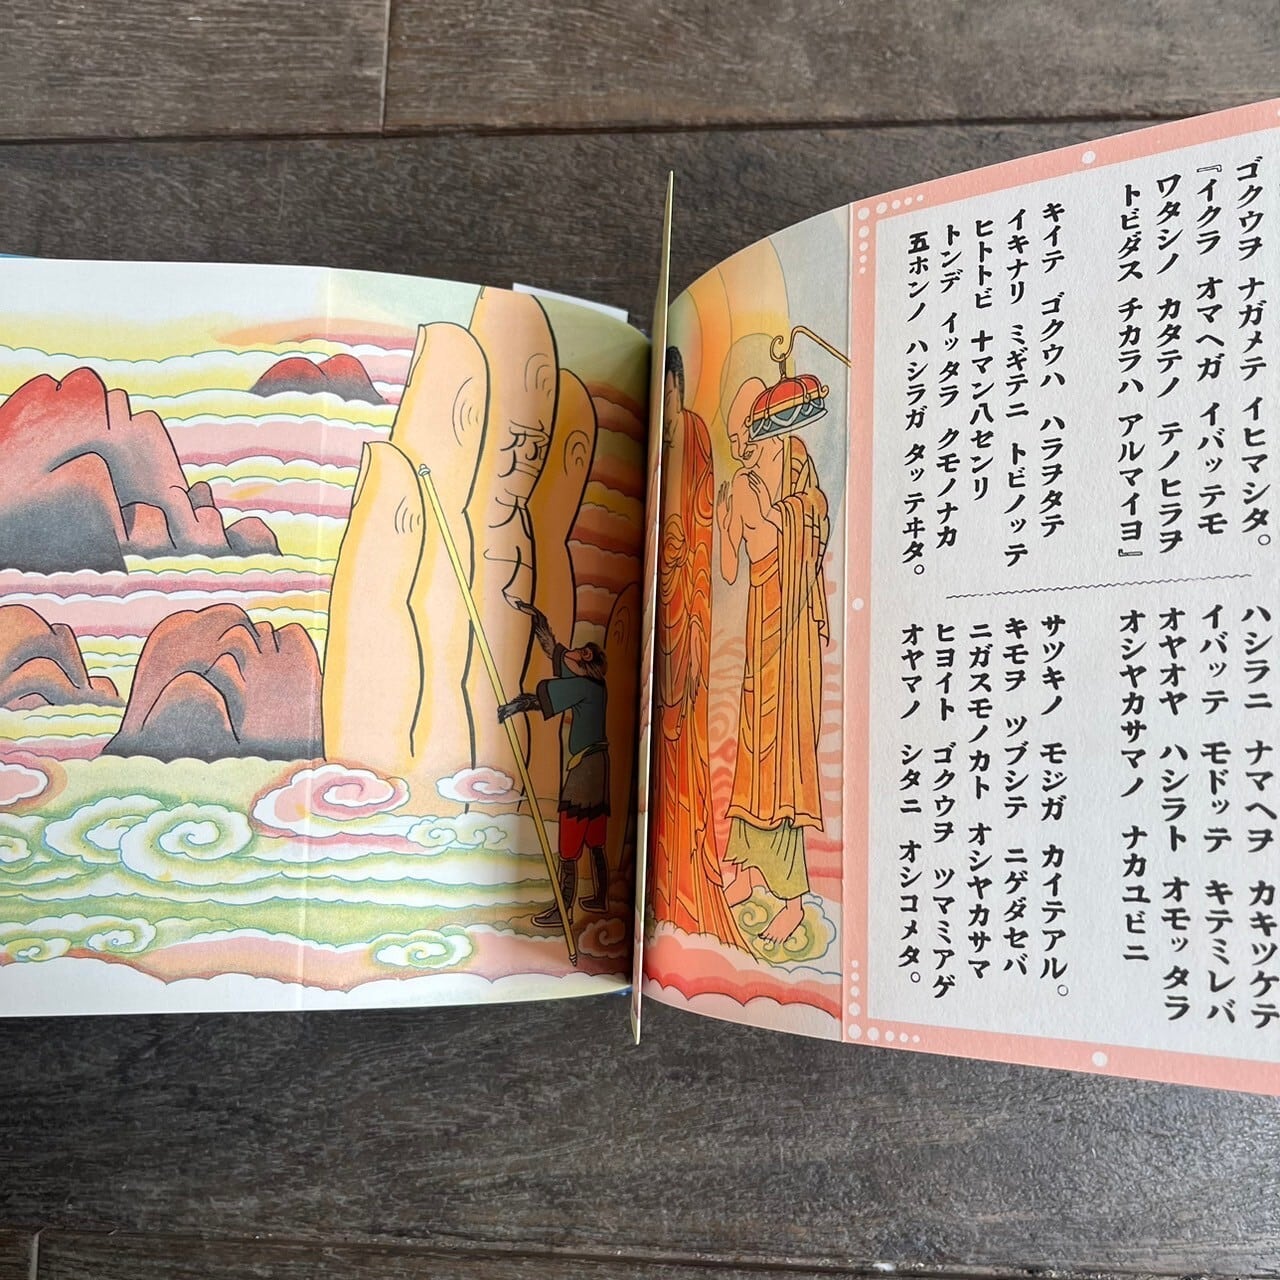 ゴクウヲ ナガメテ イヒマシタ。
『イクラ オマヘガ イバッテモ
ワタシノ カタテノ テノヒラヲ
トビダス チカラハ アルマイヨ』
キイテ ゴクウハ ハラヲタテ
イキナリ ミギテニ トビノッテ
ヒトトビ 十マン八センリ
トンデ イッタラ クモノナカ
五ホンノ ハシラガ タッテヰタ。
ハシラニ ナマヘヲ カキツケテ
イバッテ モドッテ キテミレバ
オヤオヤ ハシラト オモッタラ
オシヤカサマノ ナカユビニ
サツキノ モジガ カイテアル。
キモヲ ツブシテ ニゲダセバ
ニガスモノカト オシヤカサマ
ヒヨイト ゴクウヲ ツマミアゲ
オヤマノ シタニ オシコメタ。
齊天